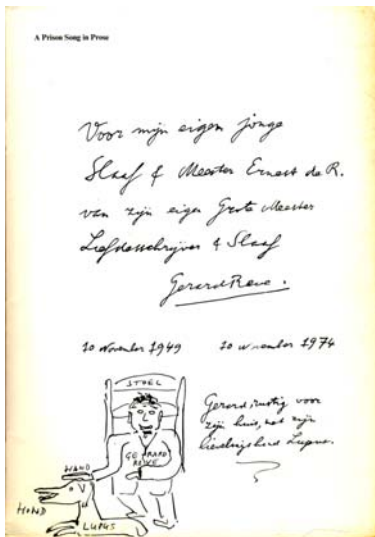 A Prison Song in Prose
Voor mijn eigen jonge
Slaaf & Meester Ernest de R.
van zijn eigen Grote Meester
Liefdesschrijver & Slaaf
Gerard Reve.
10 november 1949 10 november 1974
STOEL
GERARD
REVE
HAND
HOND
LUPUS
Gerard, rustig voor
zijn huis, met zijn
lievelingshond Lupus.